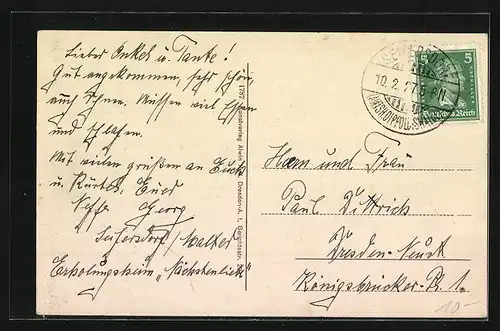 Lieber Onkel u. Tante!
Gut angekommen, sehr schön,
auch Schnee. Müssen viel Essen
und schlafen.
Mit vielen grüßen an Euch
u. Kurtel, Euer
Neffe Georg
Seifersdorf/Malter
Erholungsheim „Nächstenliebe"
1787 Kunstverlag Alwin Dresden-A. 1, Gerichtsstr.
10.2.27.5-6N.
5
Deutsches Reich
Herrn und Frau
Paul Dittrich
Dresden-Neust.
Königsbrücker-Pl. 1.
10-